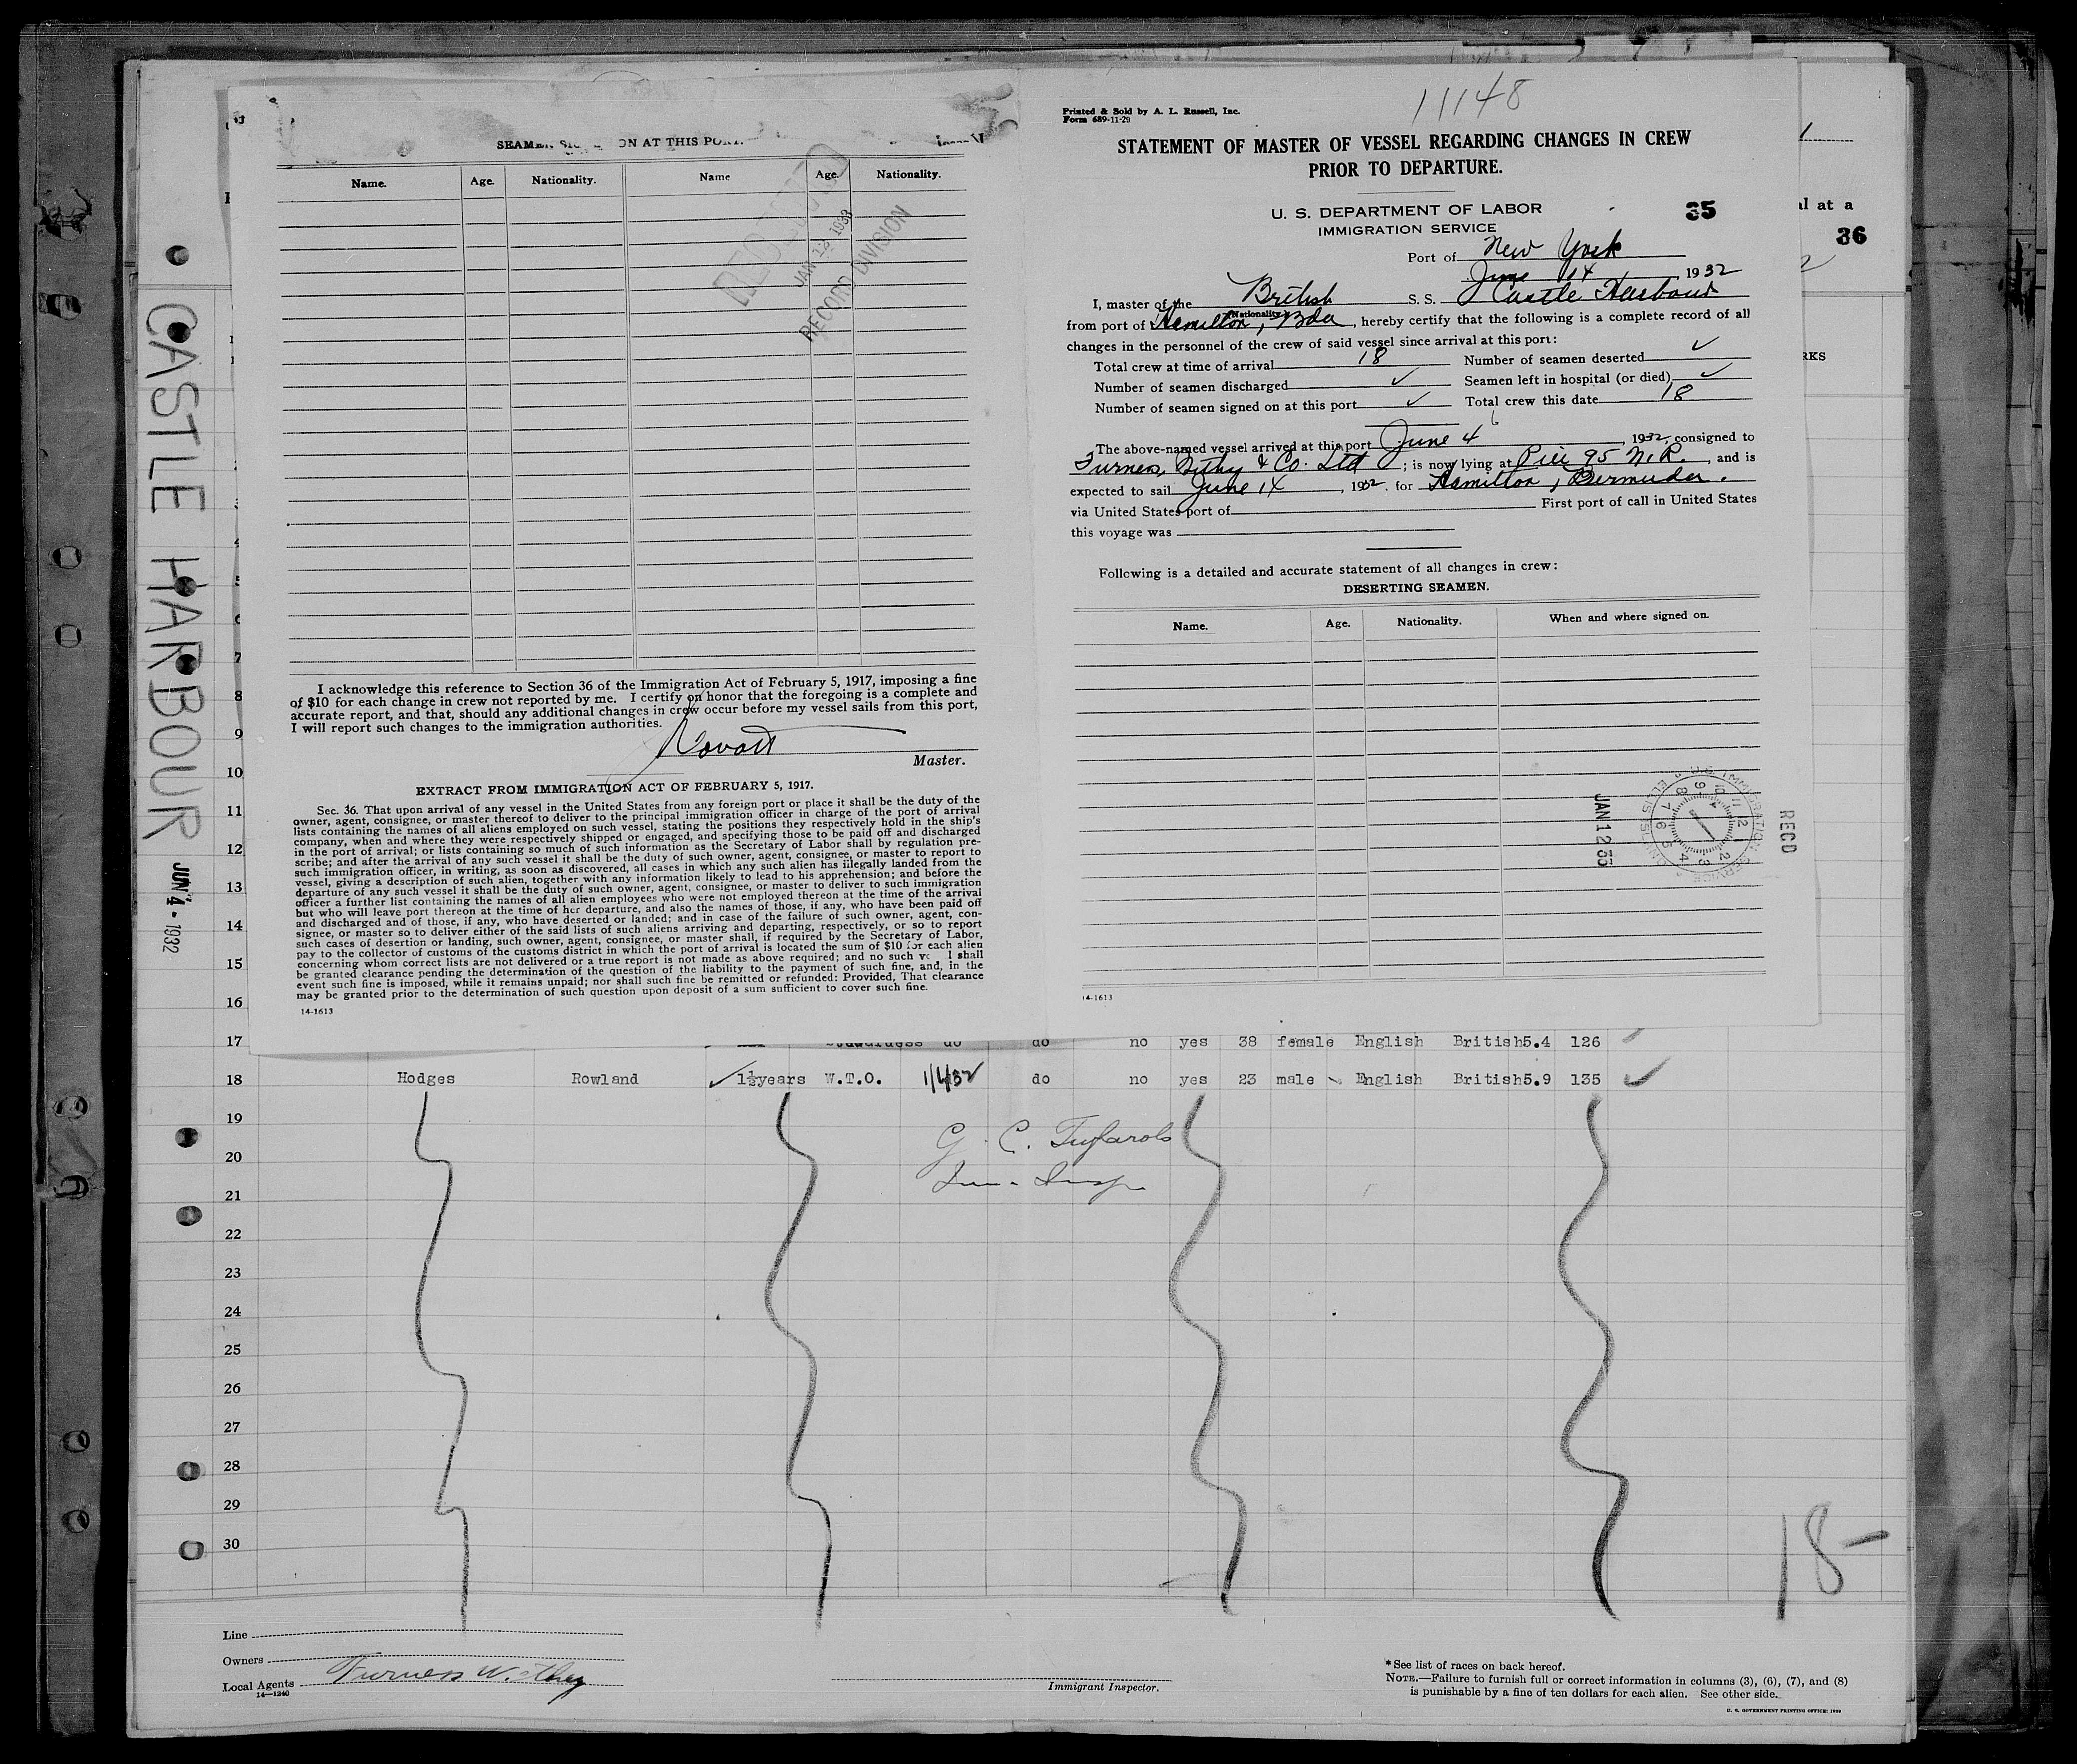 CASTLE HARBOUR
JUN 4 - 1932
ON AT THIS
Name. Age. Nationality. Name Age. Nationality.
JAN 12 1933
RECORD DIVISION
I acknowledge this reference to Section 36 of the Immigration Act of February 5, 1917, imposing a fine
of $10 for each change in crew not reported by me. I certify on honor that the foregoing is a complete and
accurate report, and that, should any additional changes in crew occur before my vessel sails from this port,
I will report such changes to the immigration authorities.
Master.
EXTRACT FROM IMMIGRATION ACT OF FEBRUARY 5, 1917.
Sec. 36. That upon arrival of any vessel in the United States from any foreign port or place it shall be the duty of the
owner, agent, consignee, or master thereof to deliver to the principal immigration officer in charge of the port of arrival
lists containing the names of all aliens employed on such vessel, stating the positions they respectively hold in the ship's
company, when and where they were respectively shipped or engaged, and specifying those to be paid off and discharged
in the port of arrival; or lists containing so much of such information as the Secretary of Labor shall by regulation pre-
scribe; and after the arrival of any such vessel it shall be the duty of such owner, agent, consignee, or master to report to
such immigration officer, in writing, as soon as discovered, all cases in which any such alien has illegally landed from the
vessel, giving a description of such alien, together with any information likely to lead to his apprehension; and before the
departure of any such vessel it shall be the duty of such owner, agent, consignee, or master to deliver to such immigration
officer a further list containing the names of all alien employees who were not employed thereon at the time of the arrival
but who will leave port thereon at the time of her departure, and also the names of those, if any, who have been paid off
and discharged and of those, if any, who have deserted or landed; and in case of the failure of such owner, agent, con-
signee, or master so to deliver either of the said lists of such aliens arriving and departing, respectively, or so to report
such cases of desertion or landing, such owner, agent, consignee, or master shall, if required by the Secretary of Labor,
pay to the collector of customs of the customs district in which the port of arrival is located the sum of $10 for each alien
concerning whom correct lists are not delivered or a true report is not made as above required; and no such shall
be granted clearance pending the determination of the question of the liability to the payment of such fine, and, in the
event such fine is imposed, while it remains unpaid; nor shall such fine be remitted or refunded: Provided, That clearance
may be granted prior to the determination of such question upon deposit of a sum sufficient to cover such fine.
14-1613
11148
Printed & Sold by A. L. Russell, Inc.
Form 689-11-29
STATEMENT OF MASTER OF VESSEL REGARDING CHANGES IN CREW
PRIOR TO DEPARTURE.
U. S. DEPARTMENT OF LABOR 35
IMMIGRATION SERVICE
Port of New York
June 14, 1932
I, master of the British S. S. Castle Harbour
(Nationality)
from port of Hamilton, Bda, hereby certify that the following is a complete record of all
changes in the personnel of the crew of said vessel since arrival at this port:
Total crew at time of arrival 18 Number of seamen deserted ✓
Number of seamen discharged ✓ Seamen left in hospital (or died) ✓
Number of seamen signed on at this port ✓ Total crew this date 18
The above-named vessel arrived at this port June 4, 1932, consigned to
Furness, Withy & Co. Ltd; is now lying at Pier 95 N.R., and is
expected to sail June 14, 1932, for Hamilton, Bermuda.
via United States port of First port of call in United States
this voyage was
Following is a detailed and accurate statement of all changes in crew:
DESERTING SEAMEN.
Name. Age. Nationality. When and where signed on.
U.S. IMMIGRATION SERVICE
JAN 12 33
RECD
14-1613
l at a
36
RKS
7
8
9
10
11
12
13
14
15
16
17 do do no yes 38 female English British 5.4 126
18 Hodges Rowland ✓ 1½years W.T.O. 1/1/32 do no yes 23 male English British 5.9 135 ✓
19
20
21
22
23
24
25
26
27
28
29
30
G. C.
Imm. Insp
18
Line
Owners
Local Agents Furness Withy
14—1240
Immigrant Inspector.
*See list of races on back hereof.
NOTE.—Failure to furnish full or correct information in columns (3), (6), (7), and (8)
is punishable by a fine of ten dollars for each alien. See other side.
U. S. GOVERNMENT PRINTING OFFICE: 1929